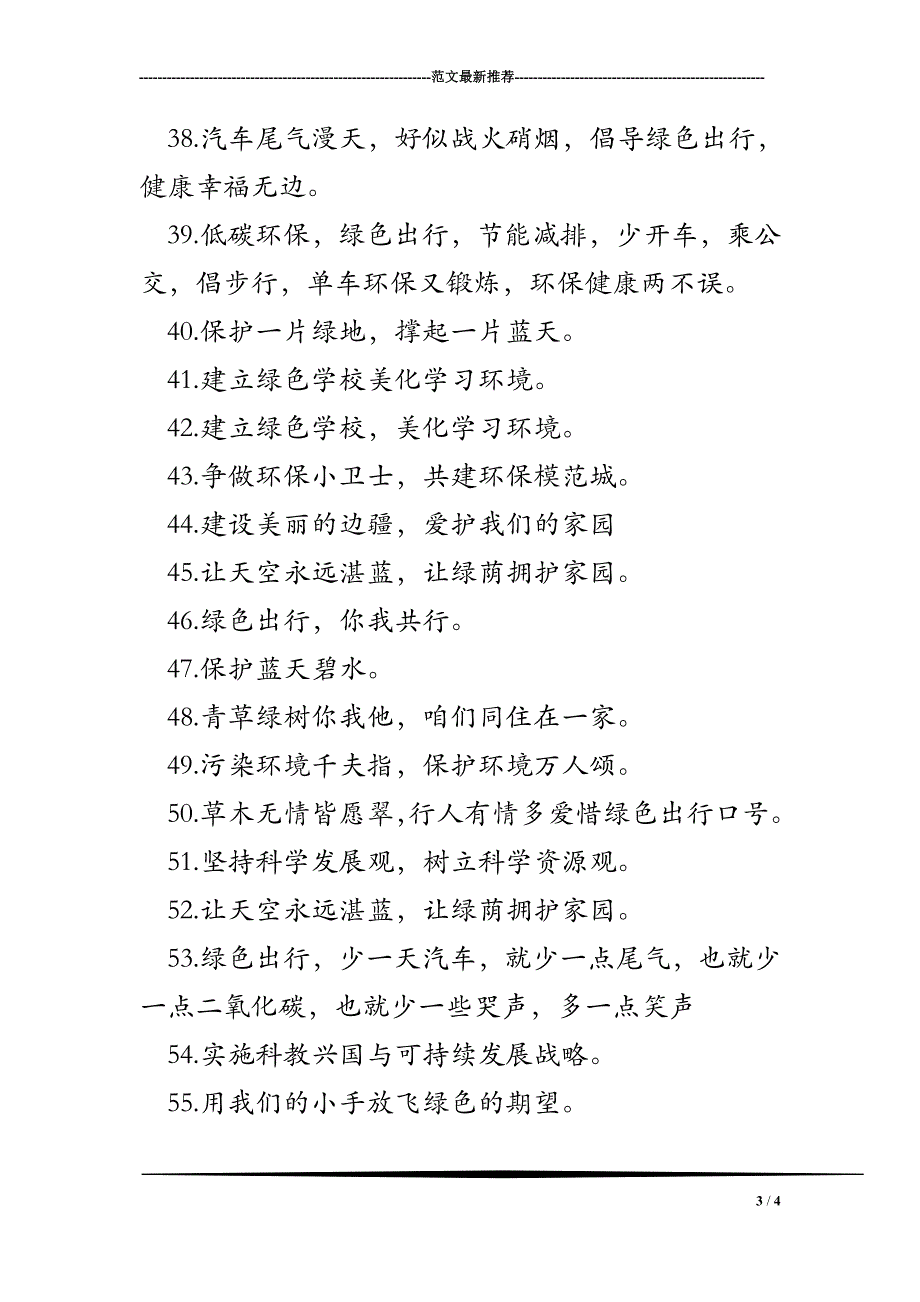 ---------------------------------------------------------------范文最新推荐------------------------------------------------------
38.汽车尾气漫天，好似战火硝烟，倡导绿色出行，
健康幸福无边。
39.低碳环保，绿色出行，节能减排，少开车，乘公
交，倡步行，单车环保又锻炼，环保健康两不误。
40.保护一片绿地，撑起一片蓝天。
41.建立绿色学校美化学习环境。
42.建立绿色学校，美化学习环境。
43.争做环保小卫士，共建环保模范城。
44.建设美丽的边疆，爱护我们的家园
45.让天空永远湛蓝，让绿荫拥护家园。
46.绿色出行，你我共行。
47.保护蓝天碧水。
48.青草绿树你我他，咱们同住在一家。
49.污染环境千夫指，保护环境万人颂。
50.草木无情皆愿翠,行人有情多爱惜绿色出行口号。
51.坚持科学发展观，树立科学资源观。
52.让天空永远湛蓝，让绿荫拥护家园。
53.绿色出行，少一天汽车，就少一点尾气，也就少
一点二氧化碳，也就少一些哭声，多一点笑声
54.实施科教兴国与可持续发展战略。
55.用我们的小手放飞绿色的期望。
3 / 4